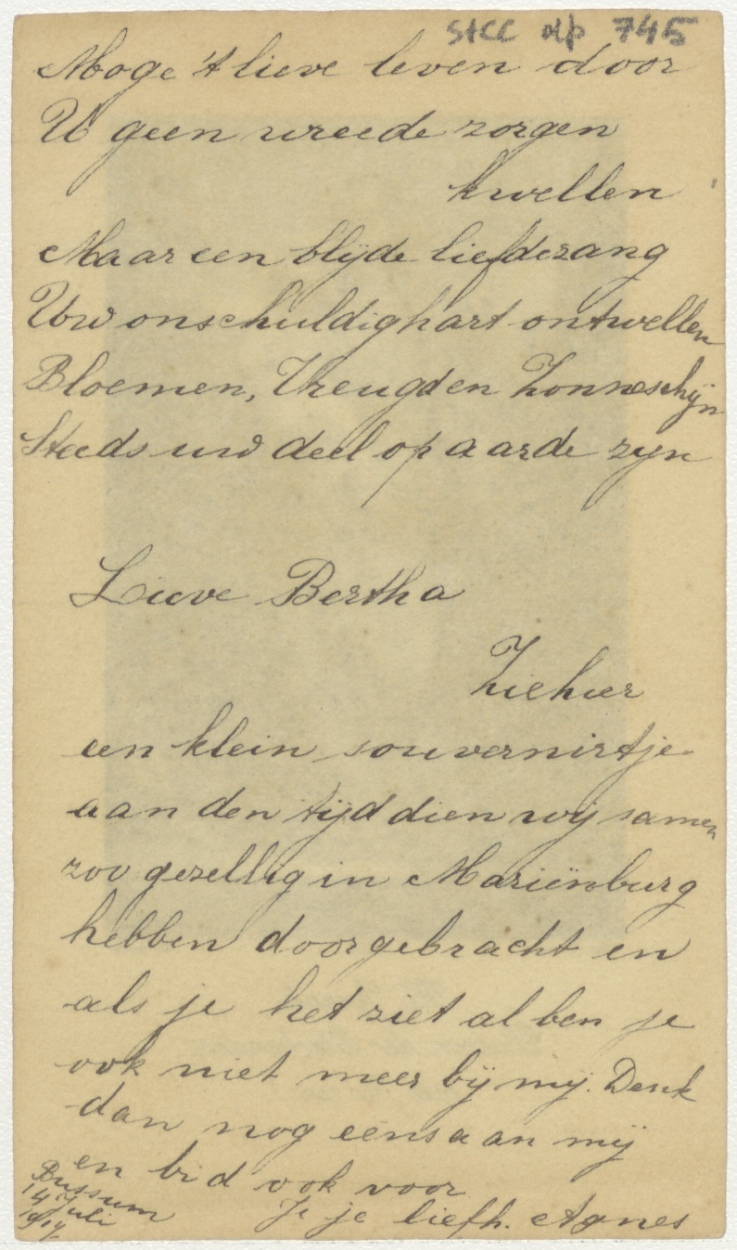 StCC dp 745
Moge 't lieve leven door
U geen wreede zorgen
kwellen
Maar een blijde liefdezang
Uw onschuldig hart ontwellen
Bloemen, Vreugd en Zonneschijn
Steeds uw deel op aarde zijn
Lieve Bertha
Ziehier
een klein souvernirtje
aan den tijd dien wij samen
zoo gezellig in Mariënburg
hebben doorgebracht en
als je het ziet al ben je
ook niet meer bij mij. Denk
dan nog eens aan mij
en bid ook voor
je liefh. Agnes
Bussum
14 Juli